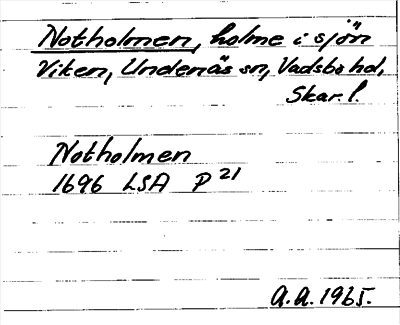 Notholmen, holme i sjön
Viken, Undenäs sn, Vadsbo hd,
Skar. l.
Notholmen
1696 LSA P 21
A.A. 1965.